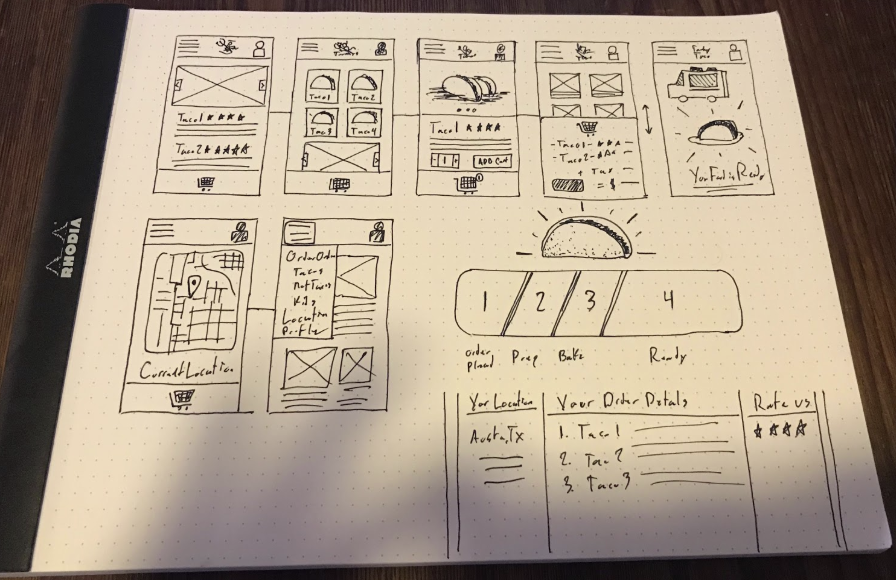 RHODIA
Taco1
Taco2
Taco1 Taco2
Taco3 Taco4
Taco1
1 ADD Cart
1
-Taco1-
-Taco2-
+ Tax
= $
Your Food is Ready
Current Location
Order
Tacos
Not Tacos
Kids
Location
Profile
1 2 3 4
Order Placed Prep Bake Ready
Your Location Your Order Details Rate us
Austin, Tx 1. Taco 1
2. Taco 2
3. Taco 3